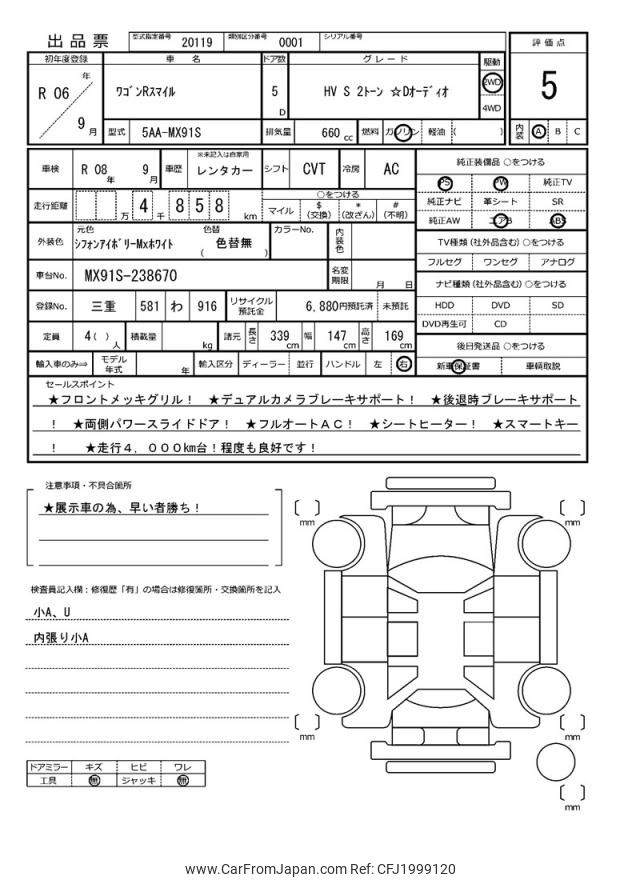 出品票
型式指定番号 20119 類別区分番号 0001 シリアル番号
評価点
5
内装 A B C
初年度登録 車名 ドア数 グレード 駆動
R 06 年 9 月
ワゴンRスマイル
5 D
HV S 2トーン ☆Dオーディオ
2WD
4WD
型式 5AA-MX91S 排気量 660 cc 燃料 ガソリン 軽油 ( )
車検 R 08 年 9 月 車歴 ※未記入は自家用 レンタカー シフト CVT 冷房 AC
走行距離 万 4 千 8 5 8 km
○をつける
マイル $(交換) *(改ざん) #(不明)
外装色 元色 シフォンアイボリーMxホワイト 色替 ( 色替無 ) カラーNo. 内装色
車台No. MX91S-238670 名変期限 月 日
登録No. 三重 581 わ 916 リサイクル預託金 6,880円預託済 未預託
定員 4( ) 人 積載量 kg 諸元 長さ 339 cm 幅 147 cm 高さ 169 cm
輸入車のみ⇨ モデル年式 年 輸入区分 ディーラー 並行 ハンドル 左 右
純正装備品 ○をつける
PS PW 純正TV
純正ナビ 革シート SR
純正AW エアB ABS
TV種類(社外品含む) ○をつける
フルセグ ワンセグ アナログ
ナビ種類(社外品含む) ○をつける
HDD DVD SD
DVD再生可 CD
後日発送品 ○をつける
新車保証書 車輌取説
セールスポイント
★フロントメッキグリル! ★デュアルカメラブレーキサポート! ★後退時ブレーキサポート
! ★両側パワースライドドア! ★フルオートAC! ★シートヒーター! ★スマートキー
! ★走行4,000km台!程度も良好です!
注意事項・不具合箇所
★展示車の為、早い者勝ち!
検査員記入欄:修復歴「有」の場合は修復箇所・交換箇所を記入
小A、U
内張り小A
ドアミラー キズ ヒビ ワレ
工具 無 ジャッキ 無
mm
mm
mm
mm
mm
www.CarFromJapan.com Ref: CFJ1999120